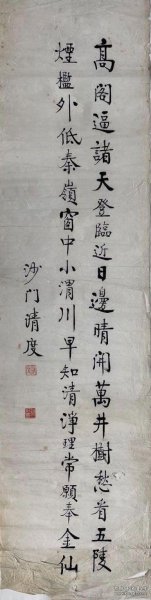 高阁逼諸天登臨近日邊晴開萬井樹愁看五陵
煙檻外低秦嶺窗中小渭川早知清淨理常願奉金仙
沙门清度